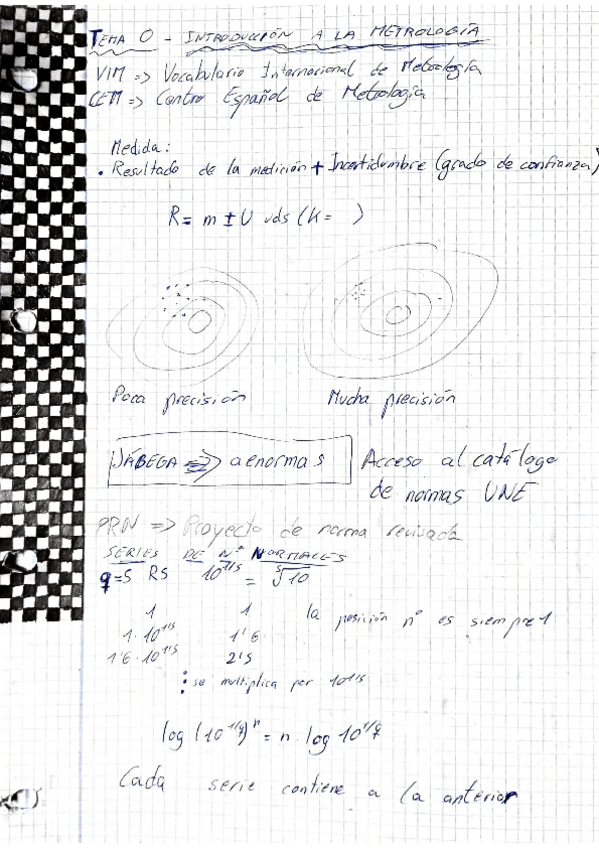 TEMA 0 - INTRODUCCIÓN A LA METROLOGÍA
VIM => Vocabulario Internacional de Metrología
CEM => Centro Español de Metrología
Medida:
• Resultado de la medición + Incertidumbre (grado de confianza)
R = m ± U uds (K = )
Poca precisión
Mucha precisión
JÁBEGA => aenormas
Acceso al catálogo
de normas UNE
PRN => Proyecto de norma revisada
SERIES DE Nº NORMALES
q=5 R5 10^1/5 = ⁵√10
1 1 la posición nº es siempre 1
1·10^1/5 1'6
1'6·10^1/5 2'5
⋮ se multiplica por 10^1/5
log (10^1/q)^n = n · log 10^1/q
Cada serie contiene a la anterior